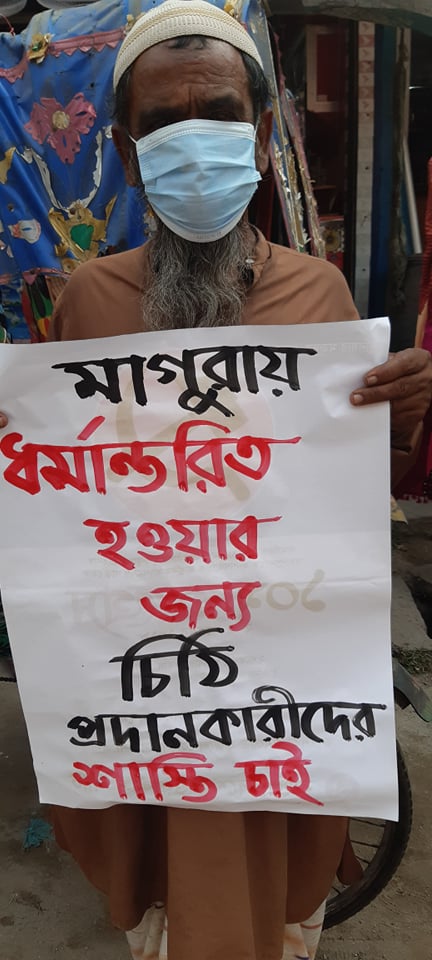 মাগুরায়
ধর্মান্তরিত
হওয়ার
জন্য
চিঠি
প্রদানকারীদের
শাস্তি চাই